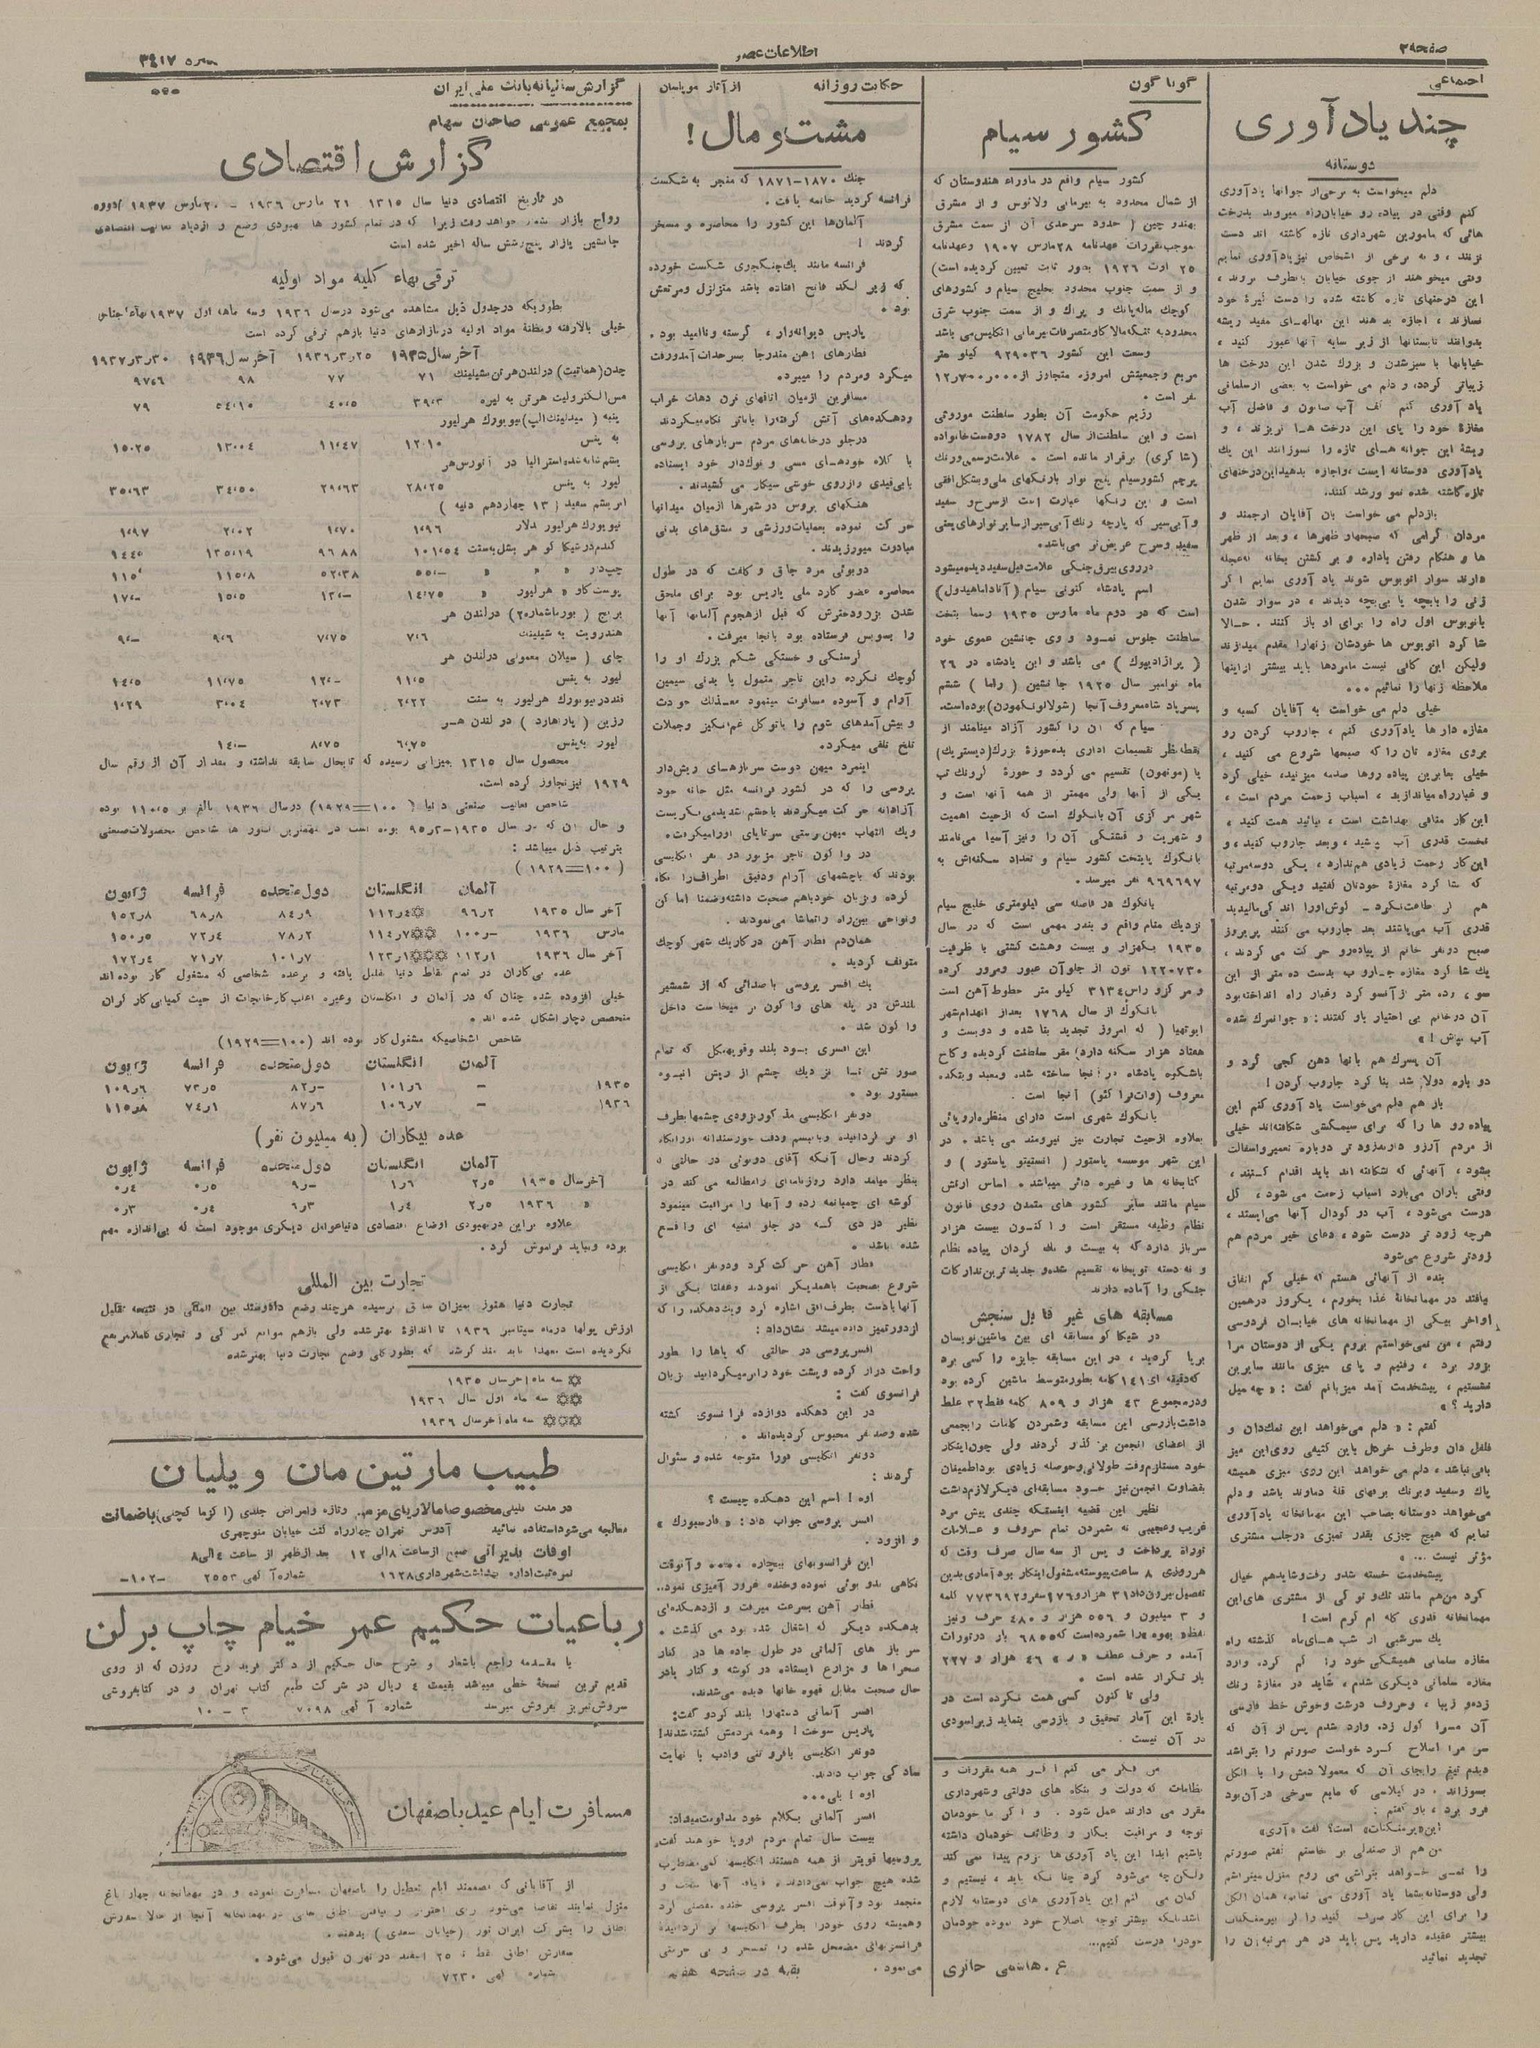 صفحه ۲
اطلاعات عصر
نمره ۳٤۱۷
اجتماعی
چند یادآوری
دوستانه
دلم میخواست به برخی از جوانها یادآوری
کنم وقتی در پیاده رو خیابان راه میروند بدرخت
هائی که مامورین شهرداری تازه کاشته اند دست
نزنند ، و به برخی از اشخاص نیز یادآوری نمایم
وقتی میخواهند از جوی خیابان بآنطرف بروند ،
این درختهای تازه کاشته شده را دست گیرهٔ خود
نسازند ، اجازه بدهند این نهالهای مفید ریشه
بدوانند تابستانها از زیر سایه آنها عبور کنید ،
خیابانها با سبز شدن و بزرگ شدن این درخت ها
زیباتر گردد، و دلم می خواست به بعضی از سلمانی
یاد آوری کنم کف آب صابون و فاضل آب
مغازهٔ خود را پای این درخت ها نریزند ، و
ریشهٔ این جوانه های تازه را نسوزانند این یک
یادآوری دوستانه ایست ، واجازه بدهید این درختهای
تازه کاشته شده نمو و رشد کنند.
بازدلم می خواست بان آقایان ارجمند و
مردان گرامی که صبحها و ظهرها ، و بعد از ظهر
ها و هنگام رفتن باداره و بر گشتن بخانه که عجله
دارند سوار اتوبوس شوند یاد آوری نمایم اگر
زنی را بابچه یا بی بچه دیدند ، در سوار شدن
باتوبوس اول راه را برای او باز کنند . حالا
شا گرد اتوبوس ها خودشان زنهارا مقدم میدارند
ولیکن این کافی نیست ما مردها باید بیشتر از اینها
ملاحظه زنها را نمائیم ...
خیلی دلم می خواست به آقایان کسبه و
مغازه دار ها یادآوری کنم ، جاروب کردن رو
بروی مغازه تان را که صبحها شروع می کنید ،
خیلی بعابرین پیاده روها صدمه میزنید، خیلی گرد
و غبار راه میاندازید ، اسباب زحمت مردم است ،
این کار منافی بهداشت است ، بیائید همت کنید ،
نخست قدری آب بپاشید ، و بعد جاروب کنید ، و
این کار زحمت زیادی هم ندارد ، یکی دو مرتبه
که شا گرد مغازهٔ خودتان گفتید و یکی دو مرتبه
هم اگر اطاعت نکرد - گوش اورا اندکی مالیدید
قدری آب می پاشند بعد جاروب می کنند پریروز
صبح دو نفر خانم از پیاده رو حرکت می کردند ،
یک شا گرد مغازه جاروب بدست ده متر از این
سو ، و ده متر از آنسو گرد و غبار راه انداخته بود
آن دو خانم بی اختیار باو گفتند : « جوانمرگ شده
آب بپاش ! »
آن پسرک هم بانها دهن کجی کرد و
دو باره دولا شد بنا کرد جاروب کردن !
باز هم دلم می خواست یاد آوری کنم این
پیاده رو ها را که برای سیمکشی شکافته اند خیلی
از مردم آرزو دارند زود تر دوباره تعمیر واسفالت
بشود ، آنهائی که شکافته اند باید اقدام کنند ،
وقتی باران می بارد اسباب زحمت می شود ، گل
درست می شود ، آب در گودال آنها می ایستد ،
هرچه زود تر درست شود ، دعای خیر مردم هم
زودتر شروع می شود
بنده از آنهائی هستم که خیلی کم اتفاق
میافتد در مهمانخانهٔ غذا بخورم ، یکروز در همین
اواخر بیکی از مهمانخانه های خیابان فردوسی
رفتم ، من نمی خواستم بروم یکی از دوستان مرا
بزور برد ، رفتیم و پای میزی مانند سایرین
نشستیم ، پیشخدمت آمد میزبانم گفت : « چه میل
دارید ؟ »
گفتم : « دلم می خواهد این نمکدان و
فلفل دان و ظرف خردل باین کثیفی روی این میز
باقی نباشد ، دلم می خواهد این روی میزی همیشه
پاک وسفید وبرنگ برفهای قلهٔ دماوند باشد و دلم
می خواهد دوستانه بصاحب این مهمانخانه یادآوری
نمایم که هیچ چیزی بقدر تمیزی در جلب مشتری
مؤثر نیست ... »
پیشخدمت خسته شد و رفت و شاید هم خیال
کرد من هم مانند تک و تو کی از مشتری های این
مهمانخانه قدری کله ام گرم است !
یک سر شبی از شب های ماه گذشته راه
مغازه سلمانی همیشگی خود را گم کرد. وارد
مغازه سلمانی دیگری شدم ، شاید در مغازهٔ رنگ
زده و زیبا ، وحروف درشت وخوش خط فارسی
آن مرا گول زد، وارد شدم پس از آن که
سر مرا اصلاح کرد خواست صورتم را بتراشد
دیدم تیغ را بجای آن که معمولا دمش را با الکل
بسوزاند ، در گیلاسی که مایع سرخی در آن بود
فرو برد ، باو گفتم :
این « پرمنگنات » است؟ گفت «آری»
من هم از صندلی بر خاستم گفتم صورتم
را نمی خواهد بتراشی می روم منزل میتراشم
ولی دوستانه بشما یاد آوری می نمایم، همان الکل
را برای این کار صرف کنید و اگر بپرمنگنات
بیشتر عقیده دارید پس باید در هر مرتبه آن را
تجدید نمائید
من فکر می کنم اگر همه مقررات و
نظامات که دولت و بنگاه های دولتی وشهرداری
مقرر می دارند عمل شود . و اگر ما خودمان
توجه و مراقبت بکار و وظائف خودمان داشته
باشیم ابدا این یاد آوری ها لزوم پیدا نمی کند
ولیکن چه می شود کرد چنانکه باید ، نیستیم و
گمان می کنم این یادآوری های دوستانه لازم
باشد بلکه بیشتر توجه اصلاح خود نموده خودمان
خود را درست کنیم ...
ع . هاشمی حائری
گوناگون
کشور سیام
کشور سیام واقع در ماوراء هندوستان که
از شمال محدود به بیرمانی ولائوس و از مشرق
بهندو چین ( حدود سرحدی آن از سمت مشرق
بموجب مقررات عهدنامه ۲۸ مارس ۱۹۰۷ وعهدنامه
۲۵ اوت ۱۹۲٦ بطور ثابت تعیین گردیده است)
و از سمت جنوب محدود بخلیج سیام و کشورهای
کوچک ماله پانک و پراک و از سمت جنوب شرق
محدود به تنگه مالاکا ومتصرفات بیرمانی انگلیس می باشد
وسعت این کشور ۹۲۹۰۳٦ کیلو متر
مربع وجمعیتش امروزه متجاوز از ۱۲٫۷۰۰٫۰۰۰
نفر است .
رژیم حکومت آن بطور سلطنت موروثی
است و این سلطنت از سال ۱۷۸۲ در دست خانواده
(شا کری) برقرار مانده است . علامت رسمی ورنگ
پرچم کشور سیام پنج نوار بارنگهای ملی وبشکل افقی
است و این رنگها عبارت است از سرخ و سفید
و آبی سیر که پارچه رنگ آبی سیر از سایر نوارهای یعنی
سفید وسرخ عریض تر می باشد.
در روی بیرق جنگی علامت فیل سفید دیده میشود
اسم پادشاه کنونی سیام (آناداماهیدول)
است که در دوم ماه مارس ۱۹۳۵ رسما بتخت
سلطنت جلوس نمود و وی جانشین عموی خود
( پراژادیپوک ) می باشد و این پادشاه در ۲٦
ماه نوامبر سال ۱۹۲۵ جانشین ( راما ) ششم
پسر پادشاه معروف آنجا (شولالونکهورن) بوده است.
سیام که آن را کشور آزاد مینامند از
نقطه نظر تقسیمات اداری بده حوزهٔ بزرگ (دیستریک)
یا (مونهون) تقسیم می گردد و حوزهٔ کرونک تپ
یکی از آنها ولی مهمتر از همه آنها است و
شهر مرکزی آن بانکوک است که از حیث اهمیت
و شهریت و قشنگی آن را ونیز آسیا می نامند
بانکوک پایتخت کشور سیام و تعداد سکنه اش به
۹٦۹٦۹۷ نفر میرسد .
بانکوک در فاصله سی کیلومتری خلیج سیام
نزدیک منام واقع و بندر مهمی است که در سال
۱۹۳۵ یکهزار و بیست وهشت کشتی با ظرفیت
۱۲۲۰۷۳۰ تون از جلو آن عبور ومرور کرده
و مرکز و راس ۳۱۳٤ کیلو متر خطوط آهن است
بانکوک از سال ۱۷٦۸ بعد از انهدام شهر
ایوتهیا ( که امروز تجدید بنا شده و دویست و
هفتاد هزار سکنه دارد) مقر سلطنت گردیده و کاخ
باشکوه پادشاه در آنجا ساخته شد، ومعبد وبتکده
معروف (وات فرا کئو) آنجا است .
بانکوک شهری است دارای منظره اروپائی
بعلاوه ازحیث تجارت نیز نیرومند می باشد . در
این شهر موسسه پاستور ( انستیتو پاستور ) و
کتابخانه ها و غیره دائر میباشد . اساس ارتش
سیام مانند سایر کشور های متمدن روی قانون
نظام وظیفه مستقر است و اکنون بیست هزار
سرباز دارد که به بیست و یک گردان پیاده نظام
و نه دسته توپخانه تقسیم شده و جدیدترین تدارکات
جنگی را آماده دارند
مسابقه های غیر قابل سنجش
در شیکا گو مسابقه ای بین ماشین نویسان
برپا گردید ، در این مسابقه جایزه را کسی برد
که دقیقه ای ۱٤۱ کلمه بطور متوسط ماشین کرده بود
ودر مجموع ٤۳ هزار و ۸۰۹ کلمه فقط ۳۲ غلط
داشت بازرسی این مسابقه وشمردن کلمات را بجمعی
از اعضای انجمن برگذار کردند ولی چون اینکار
خود مستلزم وقت طولانی وحوصله زیادی بود اطمینان
بقضاوت انجمن نیز خود مسابقه ای دیگر لازم داشت
نظیر این قضیه اینستکه چندی پیش مرد
غریب وعجیبی به شمردن تمام حروف و علامات
توراة پرداخت و پس از سه سال صرف وقت که
هر روزی ۸ ساعت پیوسته مشغول اینکار بود آماری بدین
تفصیل بیرون داد ۳۱ هزار و ۱۷٦ سفر و ۷۷۳٦۹۲ کلمه
و ۳ میلیون و ۵۵٦ هزار و ٤۸۰ حرف و نیز
لفظ « یهوه » را شمرده است که ٦۸۵۵ بار در تورات
آمده و حرف عطف « و » ٤٦ هزار و ۲۲۷
بار تکرار شده است .
ولی تا کنون کسی همت نکرده است در
بارهٔ این آمار تحقیق و بازرسی بنماید زیرا سودی
در آن نیست .
حکایت روزانه
از آثار موپاسان
مشت و مال !
جنگ ۱۸۷۰-۱۸۷۱ که منجر به شکست
فرانسه گردید خاتمه یافت .
آلمان ها این کشور را محاصره و مسخر
کردند !
فرانسه مانند یک جنگجوی شکست خورده
که زیر لگد فاتح افتاده باشد متزلزل ومرتعش
بود .
پاریس دیوانه وار ، گرسنه و ناامید بود .
قطارهای آهن متدرجا بسرحدات آمد و رفت
میکرد و مردم را میبرد .
مسافرین از میان اتاقهای ترن دهات خراب
ودهکده های آتش گرفته را باتاثر نگاه میکردند
در جلو درخانه های مردم سربازهای پروسی
با کلاه خودهای مسی و نوک دار خود ایستاده
با بی قیدی و از روی خوشی سیگار می کشیدند .
هنگهای پروس در شهرها از میان میدانها
حرکت نموده بعملیات ورزشی و مشق های بدنی
مبادرت میورزیدند .
دوبوئی مرد چاق و کلفت که در طول
محاصره عضو گارد ملی پاریس بود برای ملحق
شدن بزن و دخترش که قبل از هجوم آلمانها آنها
را بسویس فرستاده بود بآنجا میرفت .
گرسنگی و خستگی شکم بزرگ او را
کوچک نکرده و این تاجر متمول با بدنی سیمین
آرام و آسوده مسافرت مینمود معذلک حوادث
و پیش آمدهای شوم را با توکل غم انگیز وجملات
تلخ تلقی میکرد .
اینمرد میهن دوست سربازهای ریش دار
پروسی را که در کشور فرانسه مثل خانه خود
آزادانه حرکت میکردند باخشم شدید می نگریست
ویک التهاب میهن پرستی سرتاپای اورا میگرفت .
در واگون تاجر مزبور دو نفر انگلیسی
بودند که باچشمهای آرام ودقیق اطراف را نگاه
کرده وبزبان خود باهم صحبت داشته وضمنا اماکن
ونواحی بین راه را تماشا می نمودند .
همان دم قطار آهن در گاریک شهر کوچک
متوقف گردید .
یک افسر پروسی باصدائی که از شمشیر
بلندش در پله های واگون بر میخاست داخل
واگون شد .
این افسری بود بلند وقوی هیکل که تمام
صورتش تا نزدیک چشم از ریش انبوه
مستور بود .
دو نفر انگلیسی مذ کور بزودی چشمها بطرف
او بر گردانیده وباتبسم ودقت خورسندانه اورا نگاه
کردند وحال آنکه آقای دوبوئی در حالتی که
بنظر میآمد دارد روزنامه ای را مطالعه می کند در
گوشه ای چمباتمه زده و آنها را مراقبت مینمود
نظیر دزدی که در جلو امنیه ای واقع
شده باشد .
قطار آهن حرکت کرد ودو نفر انگلیسی
شروع بصحبت باهمدیگر نمودند وغفلتا یکی از
آنها بادست بطرف افق اشاره کرد ویک دهکده را که
از دور تمیز داده میشد نشان داد :
افسر پروسی در حالتی که پاها را بطور
راحت دراز کرده وپشت خود را برمیگردانید بزبان
فرانسوی گفت :
در این دهکده دوازده فرانسوی کشته
شده وصد نفر محبوس گردیده اند .
دو نفر انگلیسی فورا متوجه شده و سئوال
کردند :
اوه ! اسم این دهکده چیست ؟
افسر پروسی جواب داد : « فارسبورگ »
و افزود .
این فرانسویهای بیچاره .... و آنوقت
نگاهی بدو بوئی نموده وخنده غرور آمیزی نمود..
قطار آهن بسرعت میرفت و از دهکده ای
بدهکده دیگر که اشغال شده بود می گذشت .
سرباز های آلمانی در طول جاده ها در کنار
صحرا ها و مزارع ایستاده در گوشه و کنار یا در
حال صحبت مقابل قهوه خانها دیده می شدند.
افسر آلمانی دستها را بلند کرد و گفت:
پاریس سوخت ! وهمه مردمش کشته شدند !
دو نفر انگلیسی بافروتنی وادب با نهایت
سادگی جواب دادند .
اوه ! بلی ...
افسر آلمانی بکلام خود مداومت میداد :
بیست سال تمام مردم اروپا خواهند گفت
پروسیها قویتر از همه هستند انگلیسها کمی مضطرب
شده هیچ جواب نمی دادند و قیافه آنها سخت و
منجمد بود و آنوقت افسر پروسی خنده مفصلی کرد
وهمیشه روی خود را بطرف انگلیسها بر گردانیده
فرانسویهای مضمحل شده را تمسخر و بی حرمتی
می نمود .
بقیه در صفحه هفتم
گزارش سالیانه بانک ملی ایران
بمجمع عمومی صاحبان سهام
گزارش اقتصادی
در تاریخ اقتصادی دنیا سال ۱۳۱۵ ۲۱ مارس ۱۹۳٦ - ۲۰ مارس ۱۹۳۷ (دوره
رواج بازار شمار خواهد رفت زیرا که در تمام کشور ها بهبودی وضع و ازدیاد فعالیت اقتصادی
جانشین بازار پنج و شش ساله اخیر شده است
ترقی بهاء کلیه مواد اولیه
بطوریکه در جدول ذیل مشاهده می شود در سال ۱۹۳٦ وسه ماهه اول ۱۹۳۷ بهاء اجناس
خیلی بالا رفته و مظنهٔ مواد اولیه در بازارهای دنیا بازهم ترقی کرده است
آخر سال ۱۹۳۵ ۲۵ر۳ر۱۹۳٦ آخر سال ۱۹۳٦ ۳۰ر۳ر۱۹۳۷
چدن (هماتیت) در لندن هر تن بشیلینگ ۷۱ ۷۷ ۹۸ ۹۷،٦
مس الکترولیت هر تن به لیره ۳۹،۳ ٤۰،۵ ۵٤،۱۰ ۷۹
پنبه ( میدلینگ الپ) نیویورک هر لیور
به پنس ۱۲،۱۰ ۱۱،٤۷ ۱۳،۰٤ ۱۵،۲۵
پشم شانه شده استرالیا در آنورس هر
لیور به پنس ۲۸،۲۵ ۲۹،٦۳ ۳٤،۵۰ ۳۵،٦۳
ابریشم سفید ( ۱۳ چهاردهم دنیه )
نیویورک هر لیور دلار ۱،۹٦ ۱،۷۰ ۲،۰۲ ۱،۹۷
گندم در شیکا گو هر بشل به سنت ۱۰۱،۵٤ ۹٦،۸۸ ۱۳۵،۱۹ ۱٤٤،۵
چپدار « « « ۵۵،۰ ۵۲،۳۸ ۱۱۵،۸ ۱۱۵،
پوست گاو « هر لیور « ۱٤،۷۵ ۱۳،- ۱۵،۵ ۱۷،-
برنج ( بورما شماره ۲) در لندن هر
هندرویت به شیلینگ ۷،٦ ۷،۷۵ ۹،٦ ۹،-
چای ( سیلان معمولی در لندن هر
لیور به پنس ۱۱،۵ ۱۲،- ۱۱،۷۵ ۱٤،۵
قند در نیویورک هر لیور به سنت ۲،۲۲ ۲،۷۳ ۳،۰٤ ۱،۲۹
رزین ( پاراهارد ) در لندن هر
لیور به پنس ٦،۷۵ ۸،۷۵ ۱٤،-
محصول سال ۱۳۱۵ بمیزانی رسیده که تابحال سابقه نداشته و مقدار آن از رقم سال
۱۹۲۹ نیز تجاوز کرده است.
شاخص فعالیت صنعتی دنیا ( ۱۰۰=۱۹۲۹) در سال ۱۹۳٦ بالغ بر ۱۱۰،۵ بوده
و حال آن که در سال ۱۹۳۵ ۲ر۹۵ بوده است در مهمترین کشور ها شاخص محصولات صنعتی
بترتیب ذیل میباشد :
(۱۰۰=۱۹۲۹)
آلمان انگلستان دول متحده فرانسه ژاپون
آخر سال ۱۹۳۵ ۲ر۹٦ ✡٤ر۱۱۲ ۹ر۸٤ ۸ر٦۸ ۸ر۱۵۲
مارس ۱۹۳٦ -ر۱۰۰ ✡✡۷ر۱۱٤ ۲ر۷۸ ٤ر۷۲ ۵ر۱۵۰
آخر سال ۱۹۳٦ ۱ر۱۱۲ ✡✡✡۱ر۱۲۳ ۷ر۱۰۱ ۷ر۷۱ ٤ر۱۷۲
عده بی کاران در تمام نقاط دنیا تقلیل یافته و برعده شخاصی که مشغول کار بوده اند
خیلی افزوده شده چنان که در آلمان و انگلستان وغیره اغلب کارخانجات از حیث کمیابی کار گران
متخصص دچار اشکال شده اند .
شاخص اشخاصیکه مشغول کار بوده اند (۱۰۰=۱۹۲۹)
آلمان انگلستان دول متحده فرانسه ژاپون
۱۹۳۵ - ٦ر۱۰۱ -ر۸۲ ۵ر۷۳ ٦ر۱۰۹
۱۹۳٦ - ۷ر۱۰٦ ٦ر۸۷ ۱ر۷٤ ۸ر۱۱۵
عده بیکاران (به میلیون نفر)
آلمان انگلستان دول متحده فرانسه ژاپون
آخر سال ۱۹۳۵ ۵ر۲ ٦ر۱ -ر۹ ۵ر۰ ٤ر۰
« ۱۹۳٦ ۵ر۲ ٤ر۱ ۳ر٦ ٤ر۰ ۳ر۰
علاوه براین در بهبودی اوضاع اقتصادی دنیا عوامل دیگری موجود است که بی اندازه مهم
بوده و نباید فراموش کرد .
تجارت بین المللی
تجارت دنیا هنوز بمیزان سابق نرسیده هر چند وضع دادوستد بین المللی در نتیجه تقلیل
ارزش پولها در ماه سپتامبر ۱۹۳٦ تا اندازهٔ بهتر شده ولی بازهم موانع گمرکی و تجاری کاملا مرتفع
نگردیده است معهذا باید متذکر شد که بطور کلی وضع تجارت دنیا بهتر شده
✡ سه ماه آخر سال ۱۹۳۵
✡✡ سه ماه اول سال ۱۹۳٦
✡✡✡ سه ماه آخر سال ۱۹۳٦
طبیب مارتین مان ویلیان
در مدت قلیلی مخصوصا مالاریای مزمن وتازه وامراض جلدی (اکزما کچلی) باضمانت
معالجه می شود استفاده نمائید آدرس تهران چهارراه کنت خیابان منوچهری
اوقات پذیرائی صبح از ساعت ۸ الی ۱۲ بعد از ظهر از ساعت ٤ الی ۸
نمره ثبت اداره بهداشت شهرداری ۱٦۲۸ شماره آگهی ۲۵۵۳ -۱۰۲-
رباعیات حکیم عمر خیام چاپ برلن
با مقدمه راجع باشعار و شرح حال حکیم از دکتر فرید رخ روزن که از روی
قدیم ترین نسخهٔ خطی میباشد بقیمت ٤ ریال در شرکت طبع کتاب تهران و در کتابفروشی
سروش تبریز بفروش میرسد شماره آگهی ۷۰۹۸ ۳ - ۱۰
مسافرت ایام عید باصفهان
از آقایانی که مصممند ایام تعطیل را باصفهان مسافرت نموده و در مهمانخانه چهار باغ
منزل نمایند تقاضا می شود برای احتراز از نیافتن اطاق خالی در مهمانخانه آنجا از حالا سفارش
اطاق را بشرکت ایران تور (خیابان سعدی) بدهند .
سفارش اطاق فقط تا ۲۵ اسفند در تهران قبول می شود .
شماره آگهی ۷۲۳۰